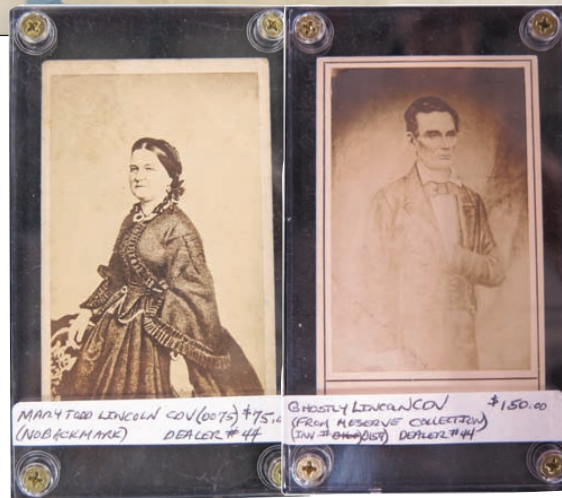 MARY TODD LINCOLN CDV (0075) $75.
(NO BACKMARK) DEALER #44
GHOSTLY LINCOLN CDV $150.00
(FROM MESERVE COLLECTION)
(INV # 0157) DEALER #44